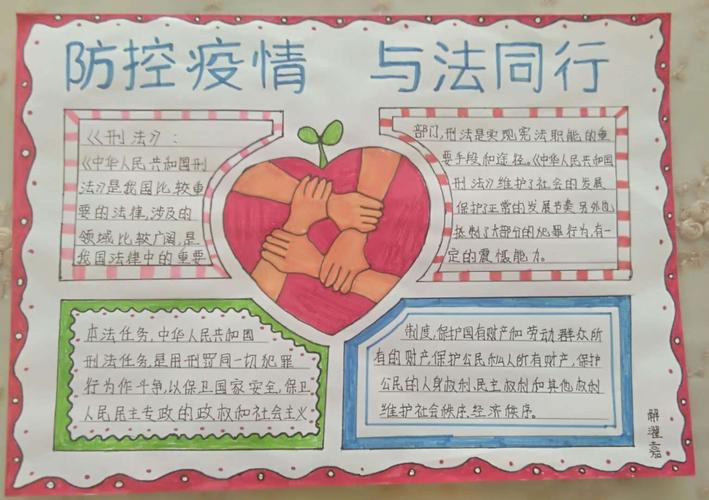 防控疫情 与法同行
《刑法》：
《中华人民共和国刑
法》是我国比较重
要的法律，涉及的
领域比较广阔，是
我国法律中的重要
部门，刑法是实现宪法职能的重
要手段和途径。《中华人民共和国
刑法》维护了社会的发展，
保护了正常的发展节奏另外也
抵制了大部分的犯罪行为，有一
定的震慑能力。
本法任务，中华人民共和国
刑法任务，是用刑罚同一切犯罪
行为作斗争，以保卫国家安全，保卫
人民民主专政的政权和社会主义
制度，保护国有财产和劳动群众所
有的财产，保护公民私人所有财产，保护
公民的人身权利，民主权利和其他权利
维护社会秩序，经济秩序。
解濯嘉